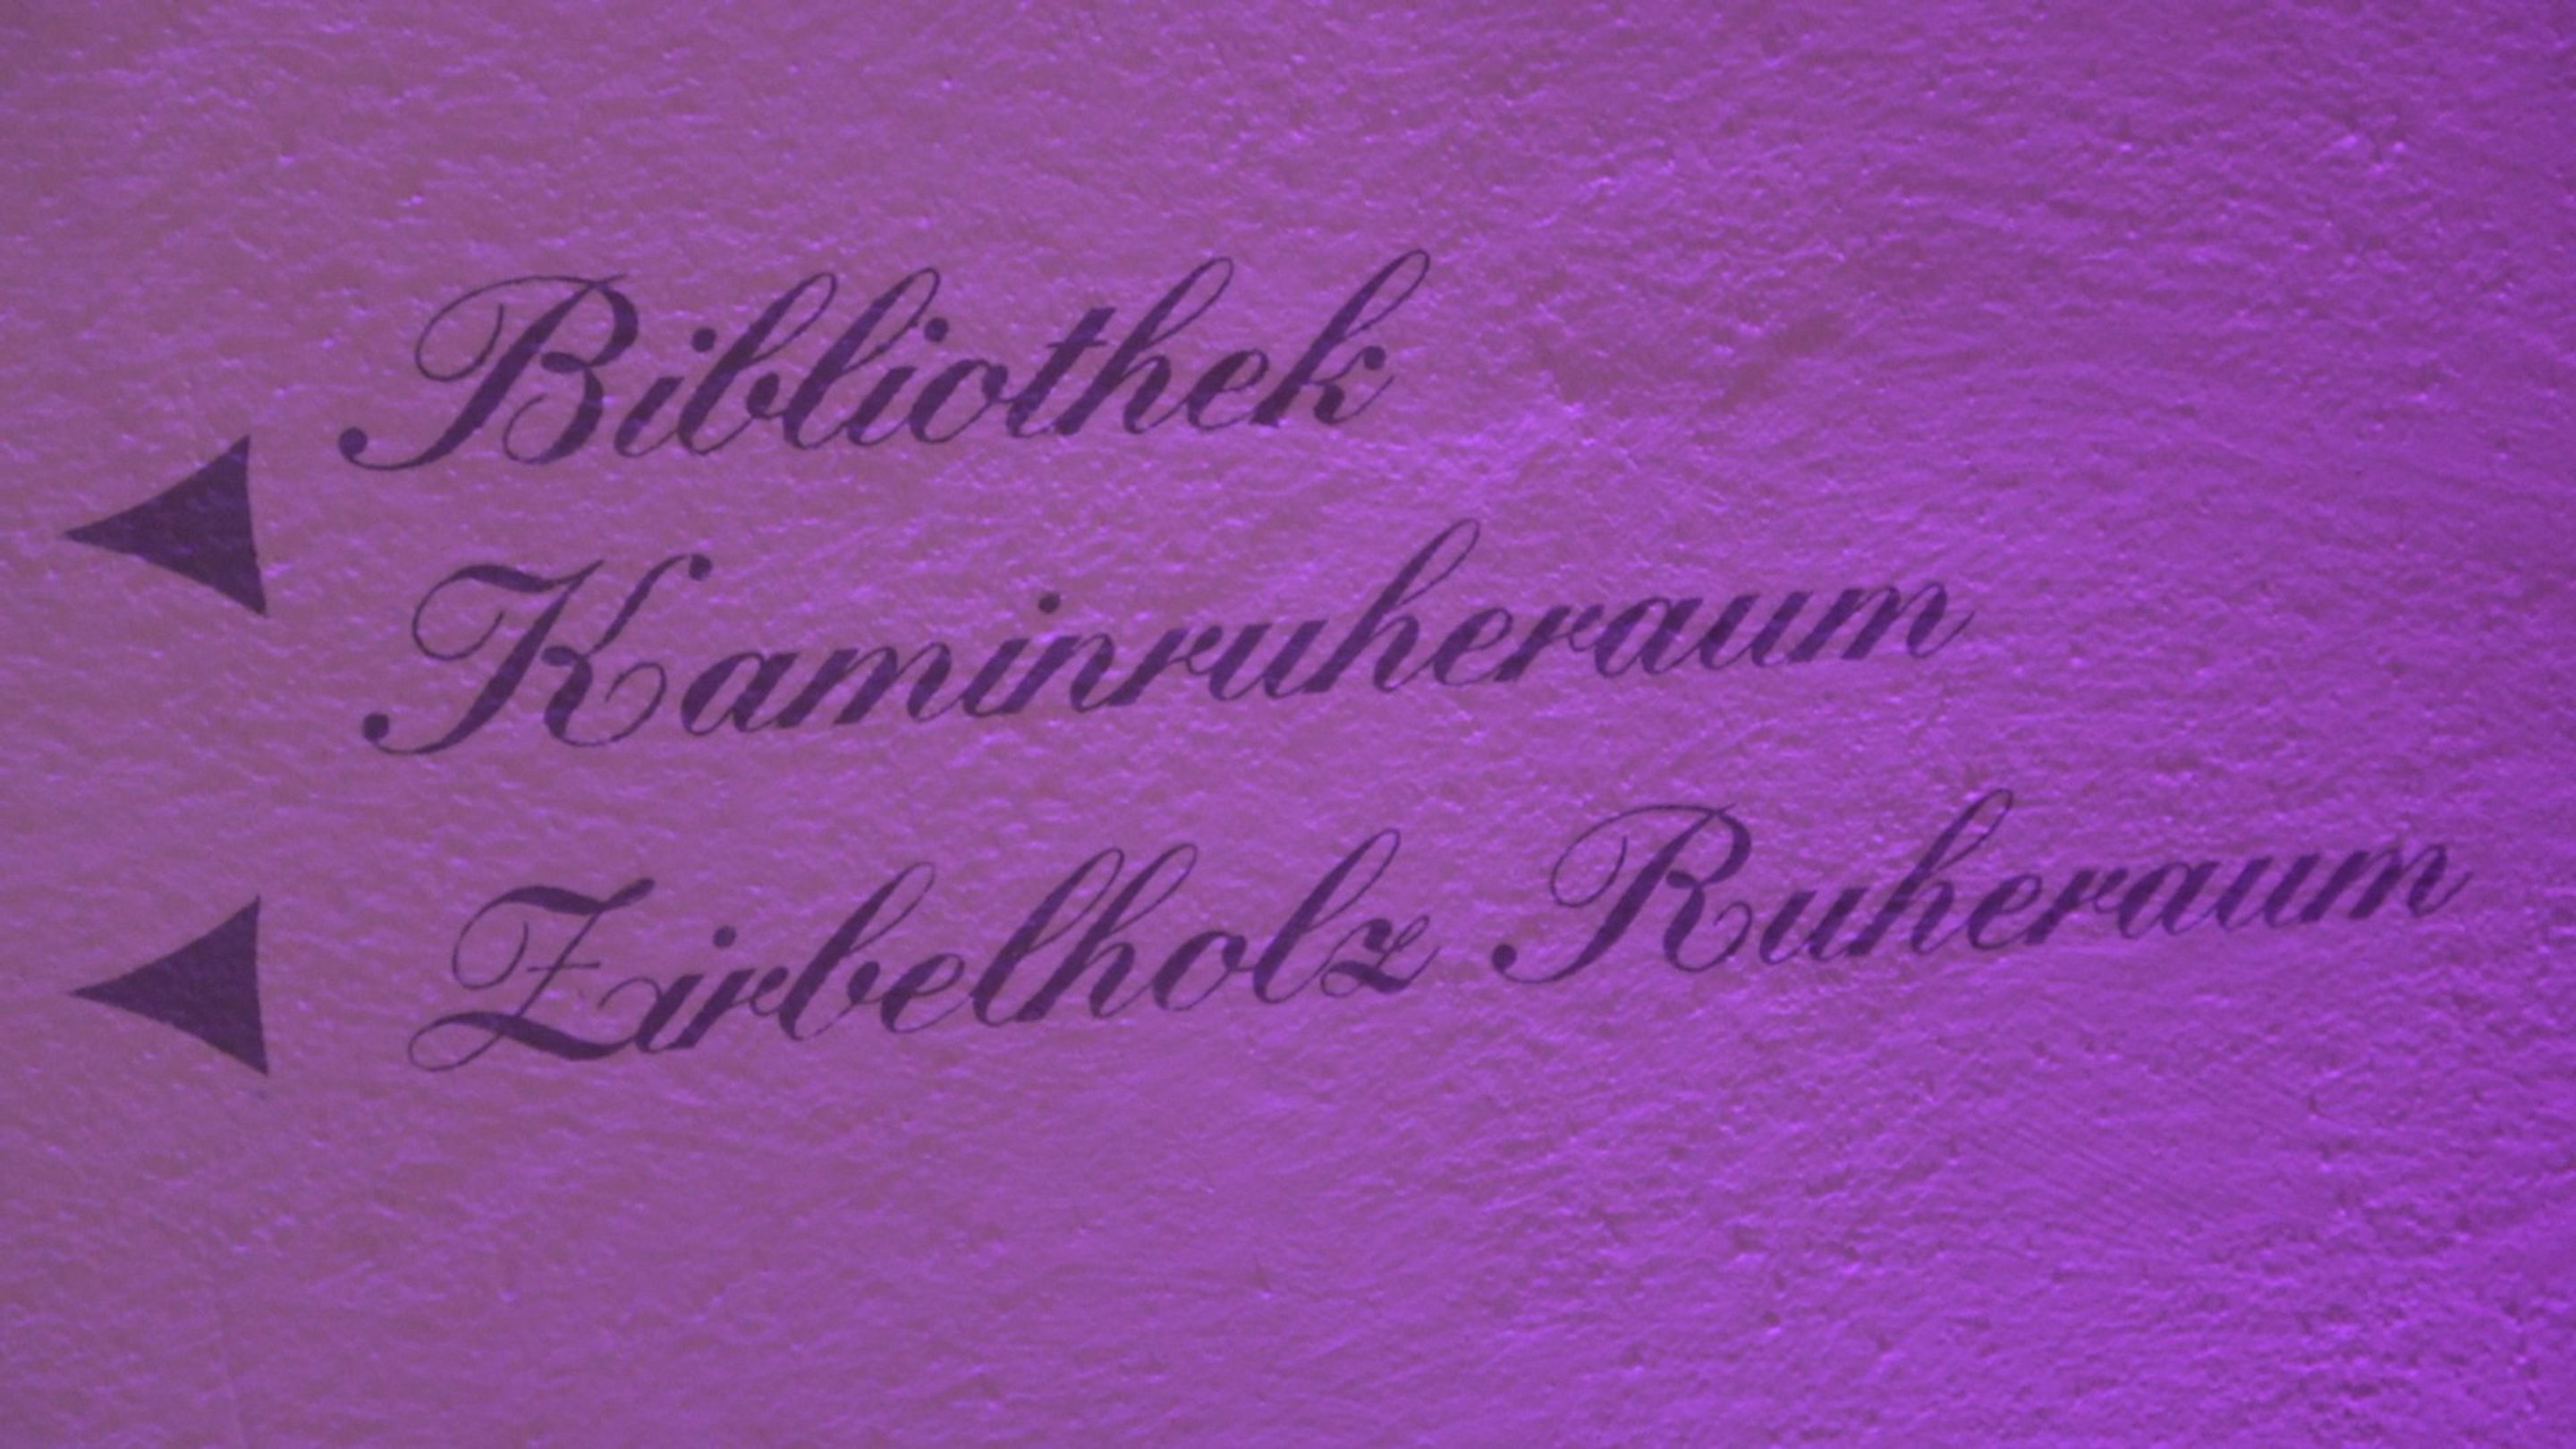 Bibliothek
Kaminruheraum
Zirbelholz Ruheraum